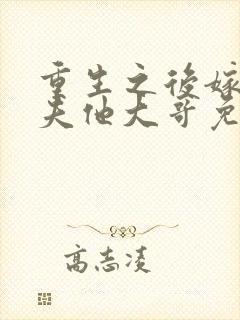 重生之後嫁
夫他大哥免
高志凌